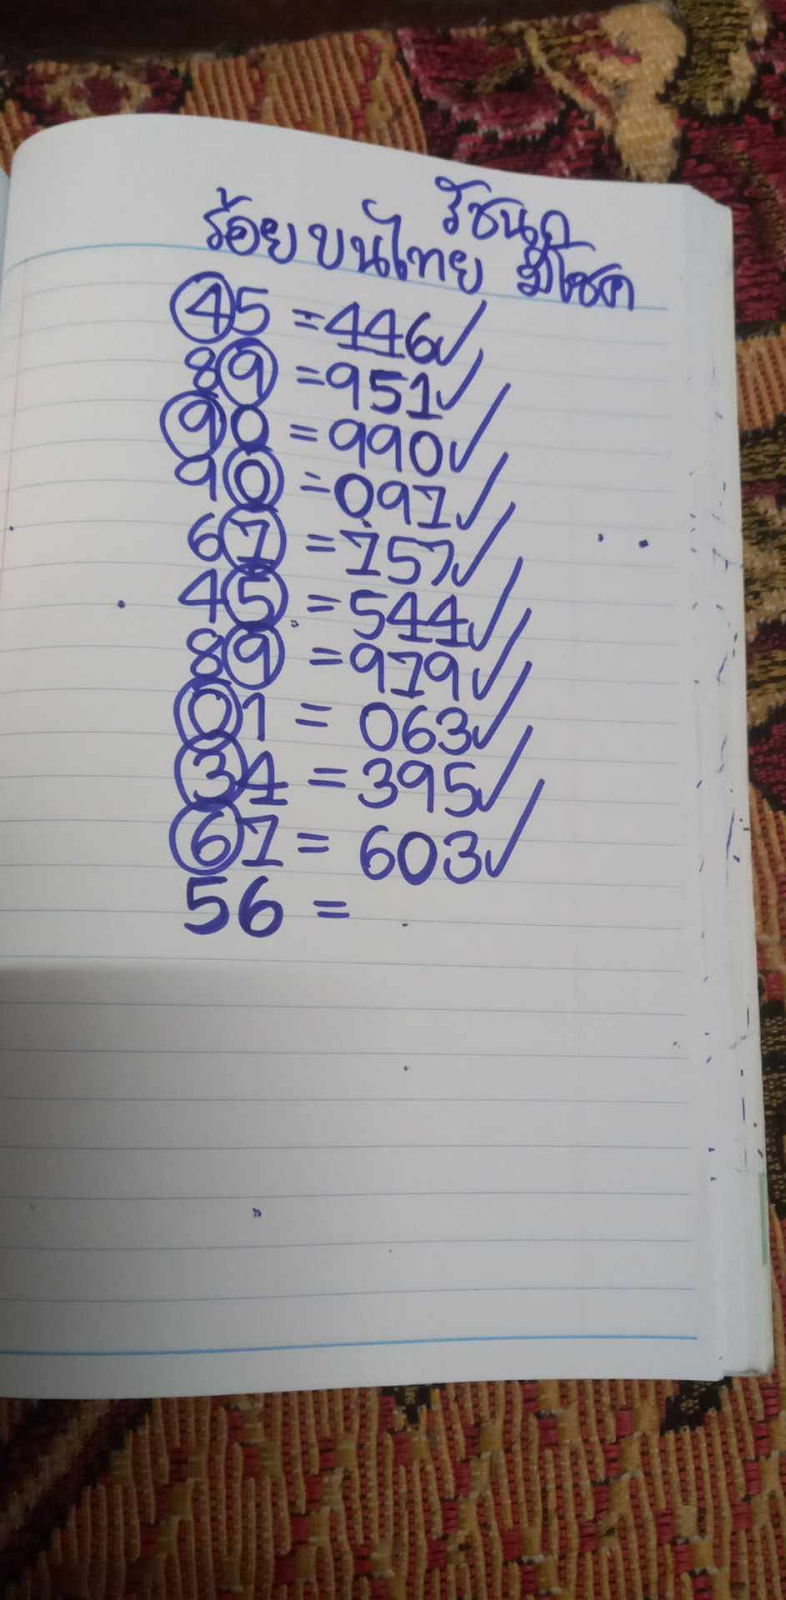 รัชนก
ร้อยบนไทย มีโชค
45 = 446✓
89 = 951✓
90 = 990✓
90 = 091✓
67 = 757✓
45 = 544✓
89 = 919✓
01 = 063✓
34 = 395✓
67 = 603✓
56 =